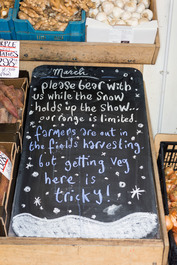 March
please bear with
us while the snow
holds up the show...
our range is limited.
farmers are out in
the fields harvesting
but getting veg
here is
tricky!